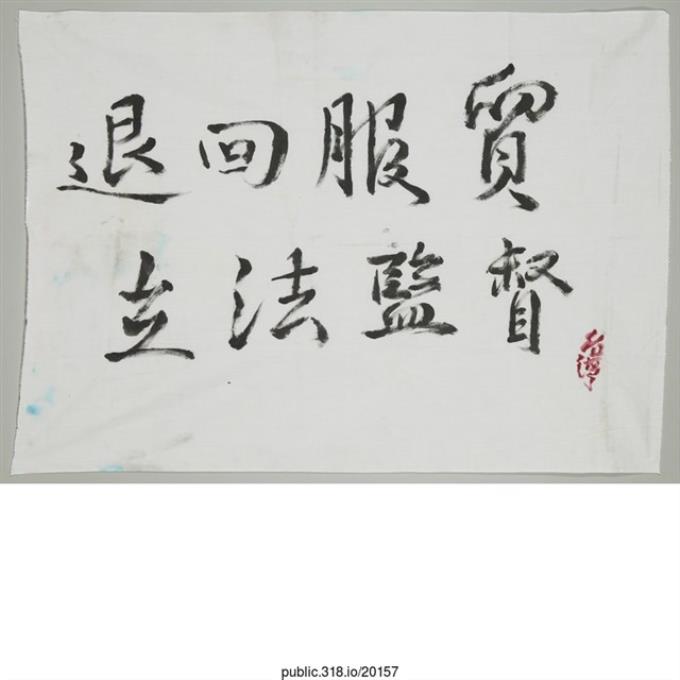 退回服貿
立法監督
台灣
public.318.io/20157